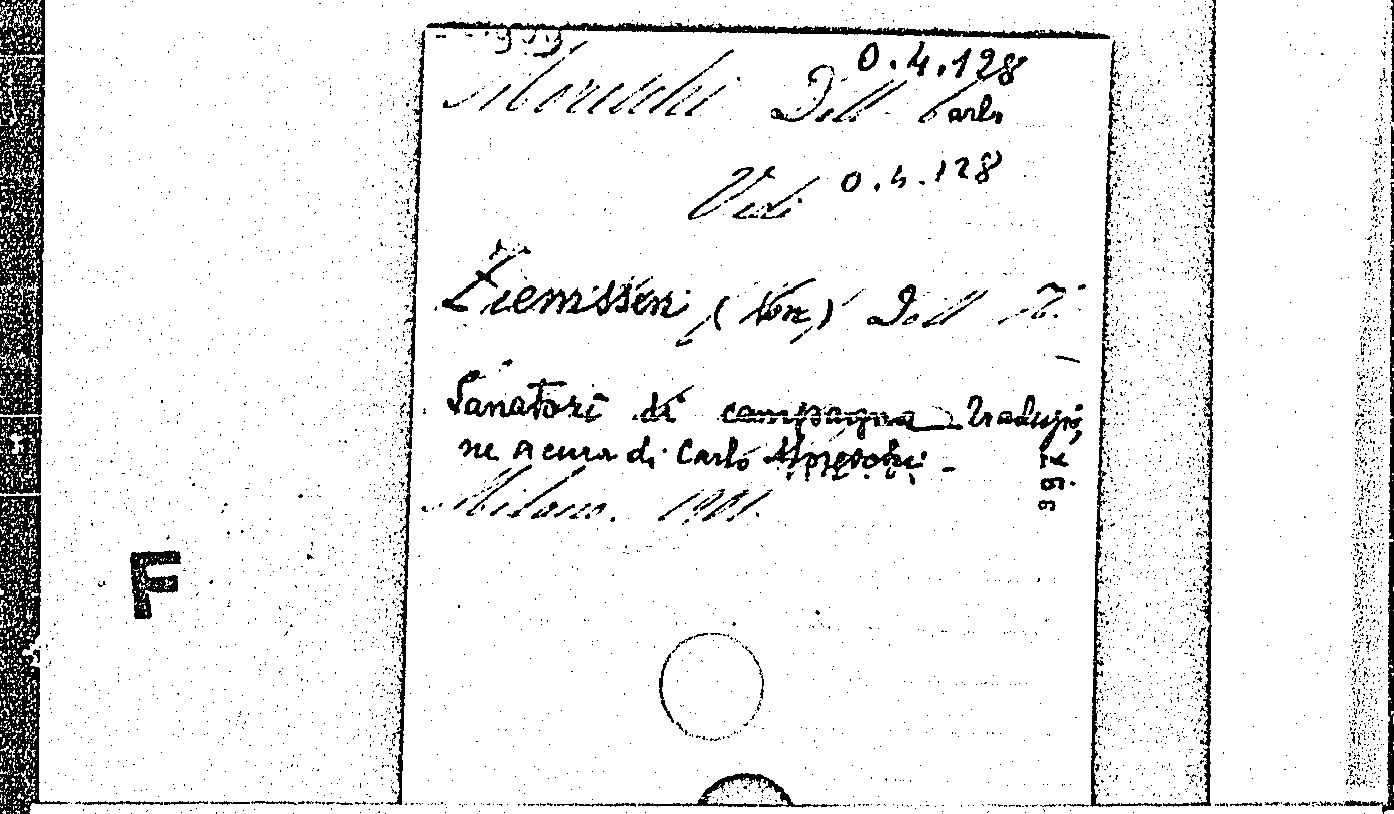 0.4.128
Moreschi Dott Carlo
Vedi 0.4.128
Ziemssen (von) Dott
Sanatori di campagna Traduzio
ne a cura di Carlo Moreschi -
Milano. 1901.
F